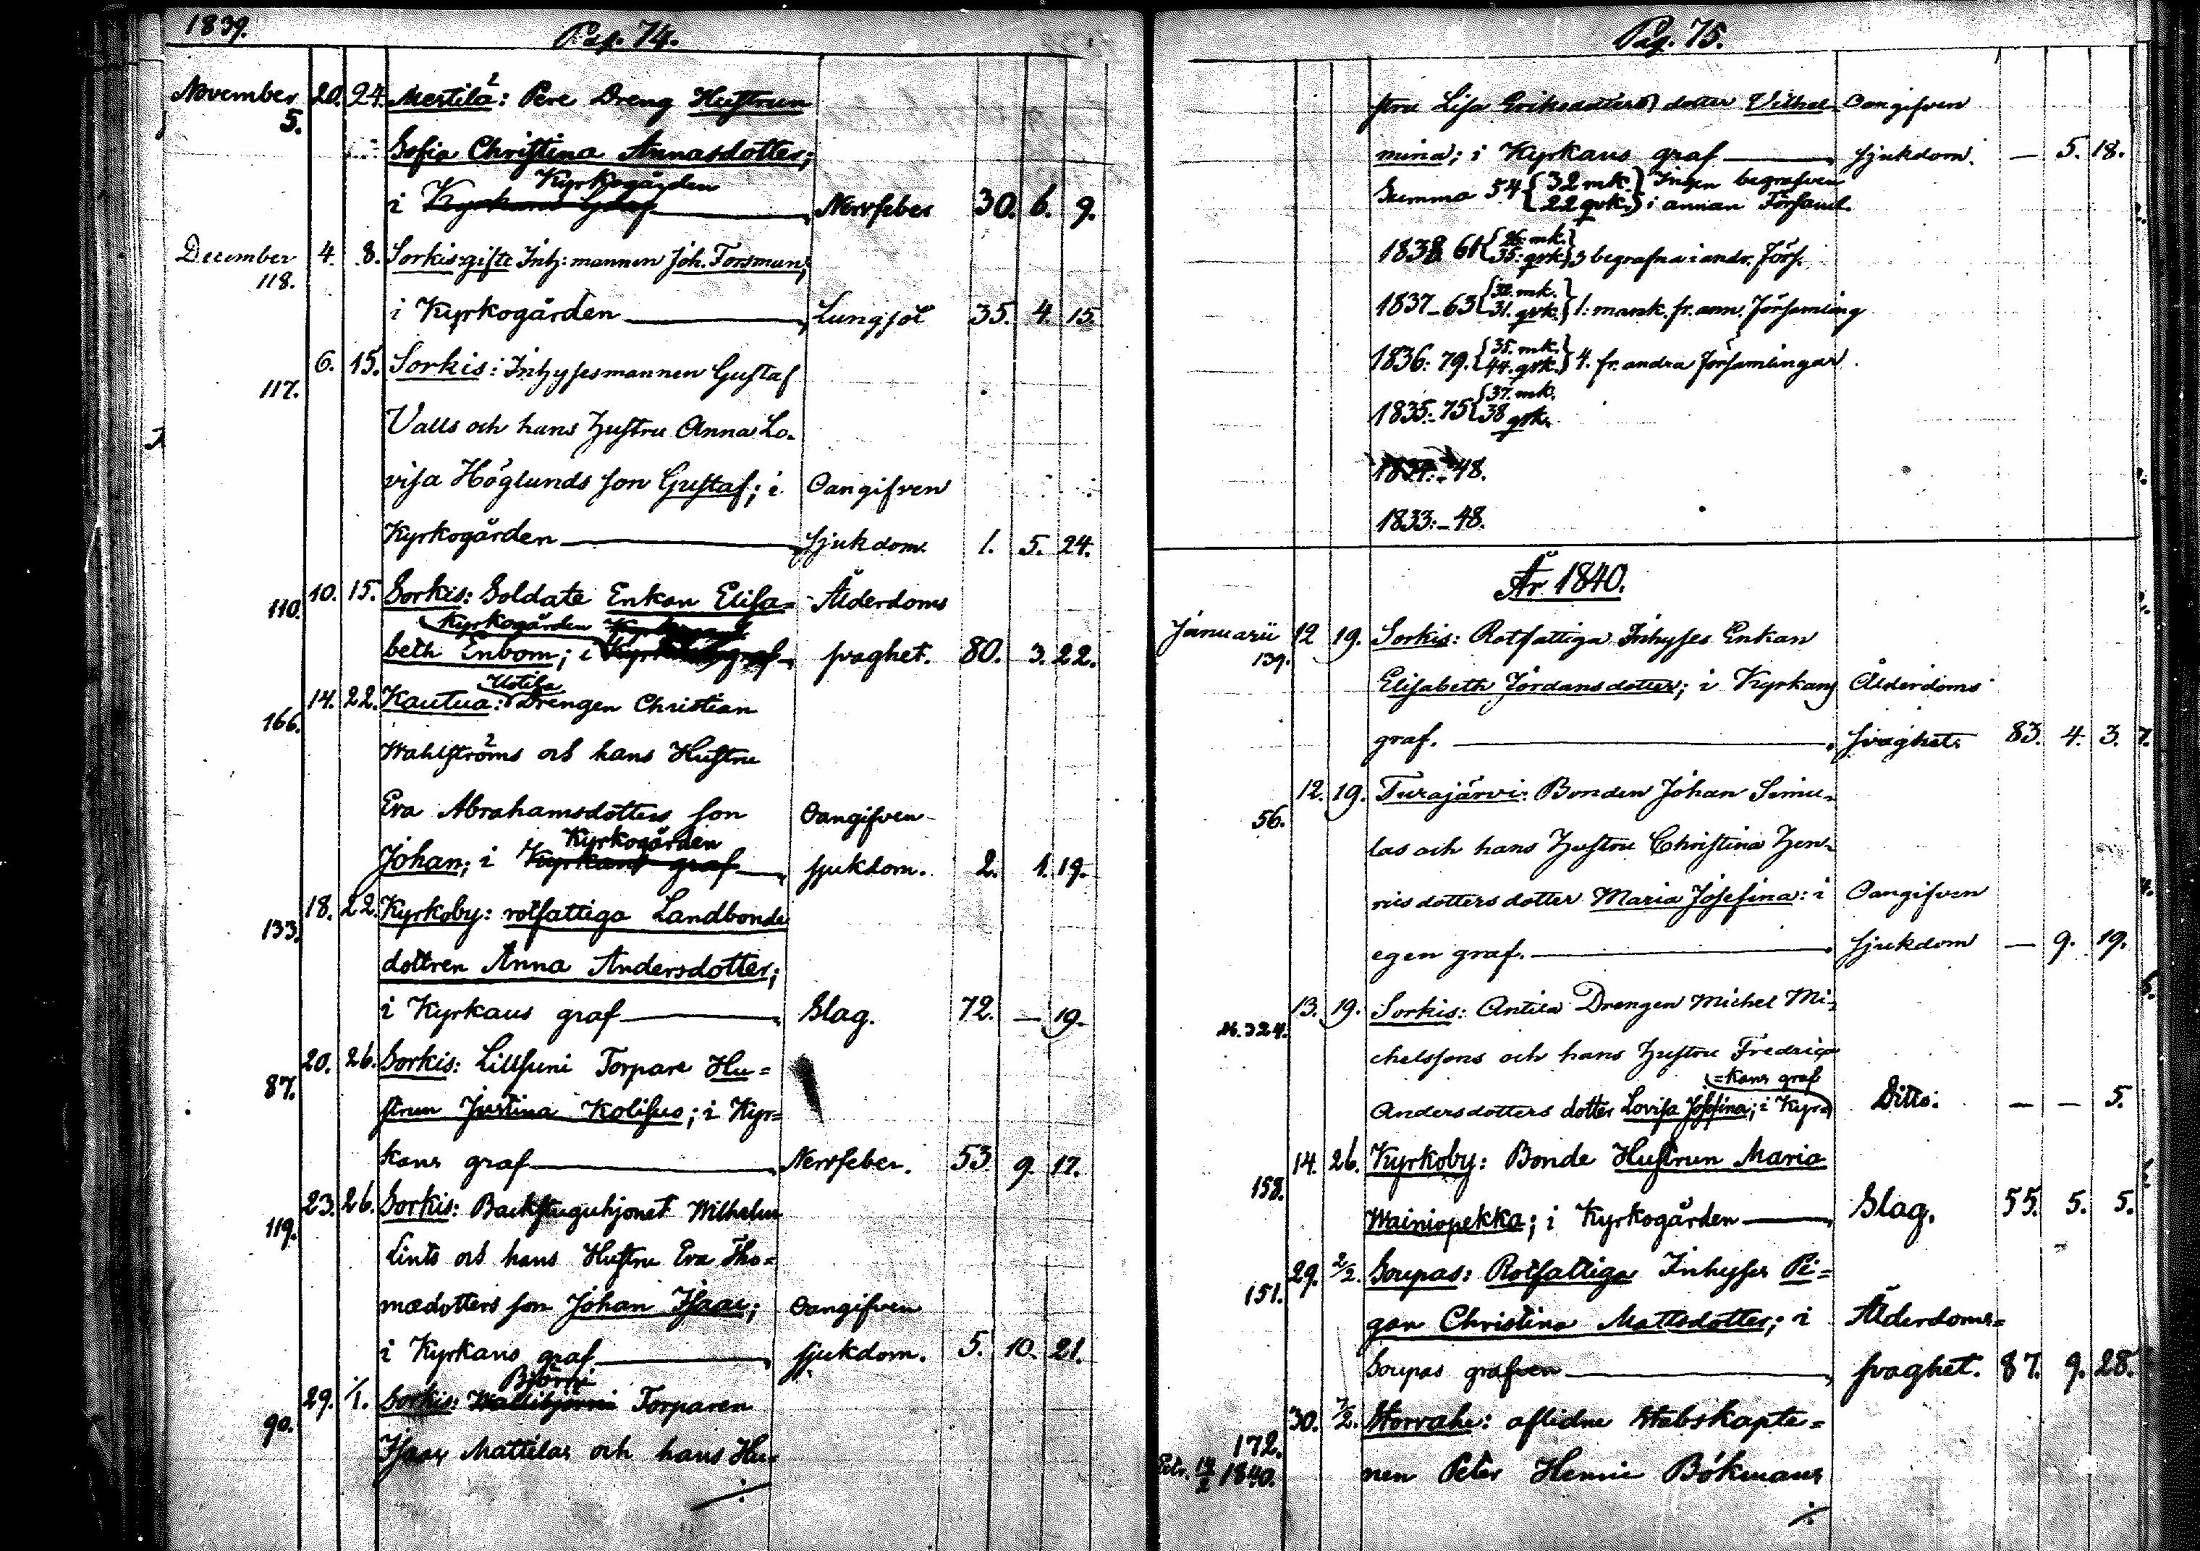 1839.
Pag. 74.
November 20. 24. Mertila: Pere Dreng Hustrun
5.
Sofia Christina Annasdotter;
Kyrkogården
i Kyrkans Graf Nervfeber 30. 6. 9.
December 4. 8. Sorkis: gifte Inh: mannen Joh. Forsman;
118.
i Kyrkogården Lungsot 35. 4. 15
6. 15. Sorkis: Inhysesmannen Gustaf
117.
Valls och hans Hustru Anna Lo-
visa Höglunds son Gustaf; i Oangifven
Kyrkogården sjukdom. 1. 5. 24.
10. 15. Sorkis: Soldate Enkan Elisa= Ålderdoms
110.
Kyrkogården
beth Enbom; i svaghet. 80. 3. 22.
Uotila
14. 22. Kautua: Drengen Christian
166.
Wahlströms och hans Hustru
Eva Abrahamsdotters son Oangifven
Kyrkogården
Johan; i Kyrkans graf sjukdom. 2. 1. 19.
18. 22. Kyrkoby: rotfattiga Landbonde
133.
dottren Anna Andersdotter;
i Kyrkans graf Slag. 72. — 19.
20. 26. Sorkis: Lillsuni Torpare Hu=
87.
strun Justina Kolisus; i Kyr=
kans graf Nervfeber. 53 9. 17.
23. 26. Sorkis: Backstuguhjonet Wilhelm
119.
Lints och hans Hustru Eva Tho=
mædotters son Johan Isaac; Oangifven
i Kyrkans graf sjukdom. 5. 10. 21.
Björni
29. 1/1. Sorkis: Torparen
90.
Isaac Mattilas och hans Hu-
Pag. 75.
stru Lisa Eriksdotters dotter Vilhel- Oangifven
mina; i Kyrkans graf sjukdom. — 5. 18.
Summa 54 {32 mk. 22 qvk.} Ingen begrafven i annan Församl.
1838. 61 35. qvk. 3 begrafna i andr. förs.
1837 – 63 {32. mk. 31. qvk.} 1: mansk. fr. ann. församling
1836: 79. {35. mk. 44. qvk.} 4. fr. andra församlingar.
1835: 75 {37. mk. 38 qvk.
1834: – 48.
1833: – 48.
År 1840.
Januarii 12 19. Sorkis: Rotfattiga Inhyses Enkan
139.
Elisabeth Jördansdotter; i Kyrkans Ålderdoms
graf. svaghet. 83. 4. 3.
12. 19. Turajärvi: Bonden Johan Simu-
56.
las och hans Hustru Christina Hen-
ricsdotters dotter Maria Josefina: i Oangifven
egen graf. sjukdom — 9. 19.
13. 19. Sorkis: Antila Drengen Michel Mi-
324.
chelssons och hans Hustru Fredrica
=kans graf
Andersdotters dotter Lovisa Josefina; i Kyr= Ditto. — — 5.
14. 26. Kyrkoby: Bonde Hustrun Maria
158.
Wainiopekka; i Kyrkogården Slag. 55. 5. 5.
29. 2/2. Soupas: Rotfattiga Inhyses Pi=
151.
gan Christina Mattsdotter; i Ålderdoms=
Soupas grafven svaghet. 87. 9. 28.
30. 7/2. Storrahe: aflidne Stabskapte=
172.
1840. nen Peter Henric Bökmans